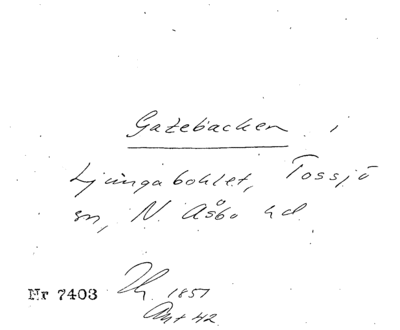 Gatebacken i
Ljungabohlet, Tossjö
sn, N. Åsbo hd.
Nr 7403
1851
Ant 42